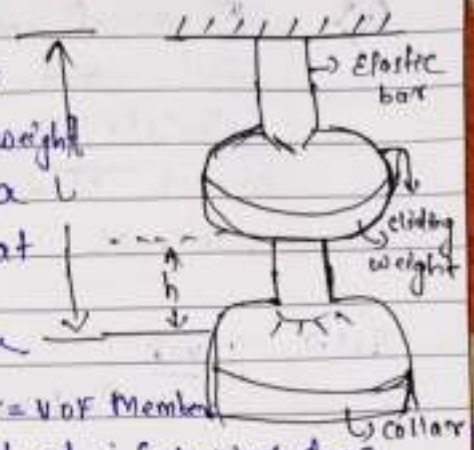 Elastic
bar
weight
a L
at
sliding
weight
h
= V OF Member
collar